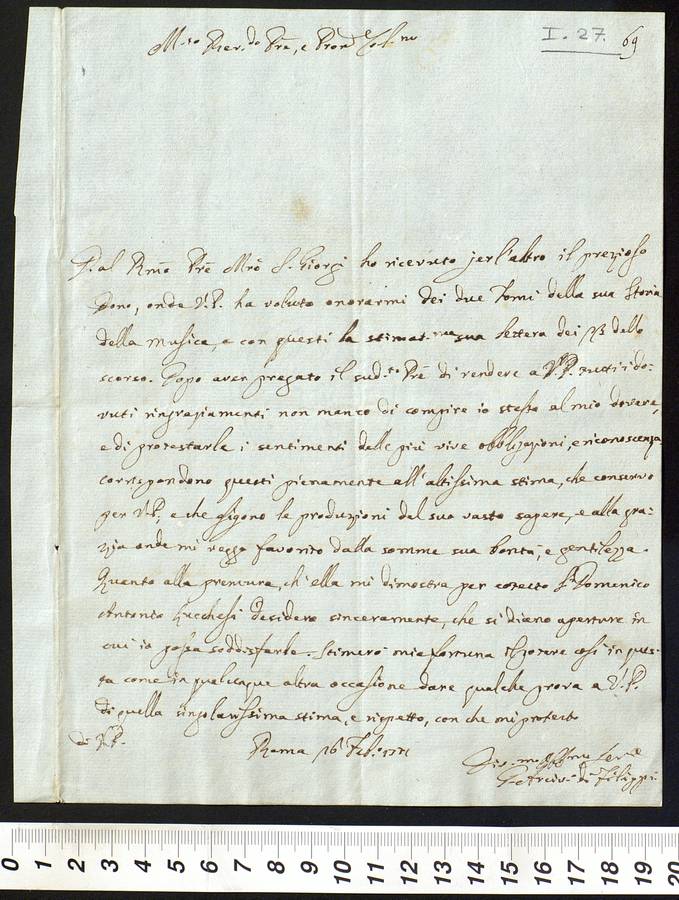 I. 27. 69
M.to Rev.do Pre, e Pron Col.mo
Dal Rmo Pre Mro S. Giorgi ho ricevuto jerl'altro il prezioso
dono, onde V.P. ha voluto onorarmi dei due Tomi della sua Storia
della musica, e con questi la stimat.ma sua lettera dei 13 dello
scorso. Dopo aver pregato il sud.to Pre di rendere a V.P. tutti i do-
vuti ringraziamenti non manco di compire io stesso al mio dovere,
e di protestarle i sentimenti delle più vive obbligazioni, e riconoscenza
corrispondono questi pienamente all'altissima stima, che conservo
per V.P., e che esigono le produzioni del suo vasto sapere, e alla gra-
zia onde mi veggo favorito dalla somma sua bontà, e gentilezza.
Quanto alla premura, ch'ella mi dimostra per cotesto Sr Domenico
Antonio Lucchesi desidero sinceramente, che si diano aperture in
cui io possa soddisfarla. Stimerò mia fortuna il potere così in ques-
ta come in qualunque altra occasione dare qualche prova a V.P.
di quella singolarissima stima, e rispetto, con che mi protesto
di V.P.
Roma 16 Feb.o 1771
Filippi